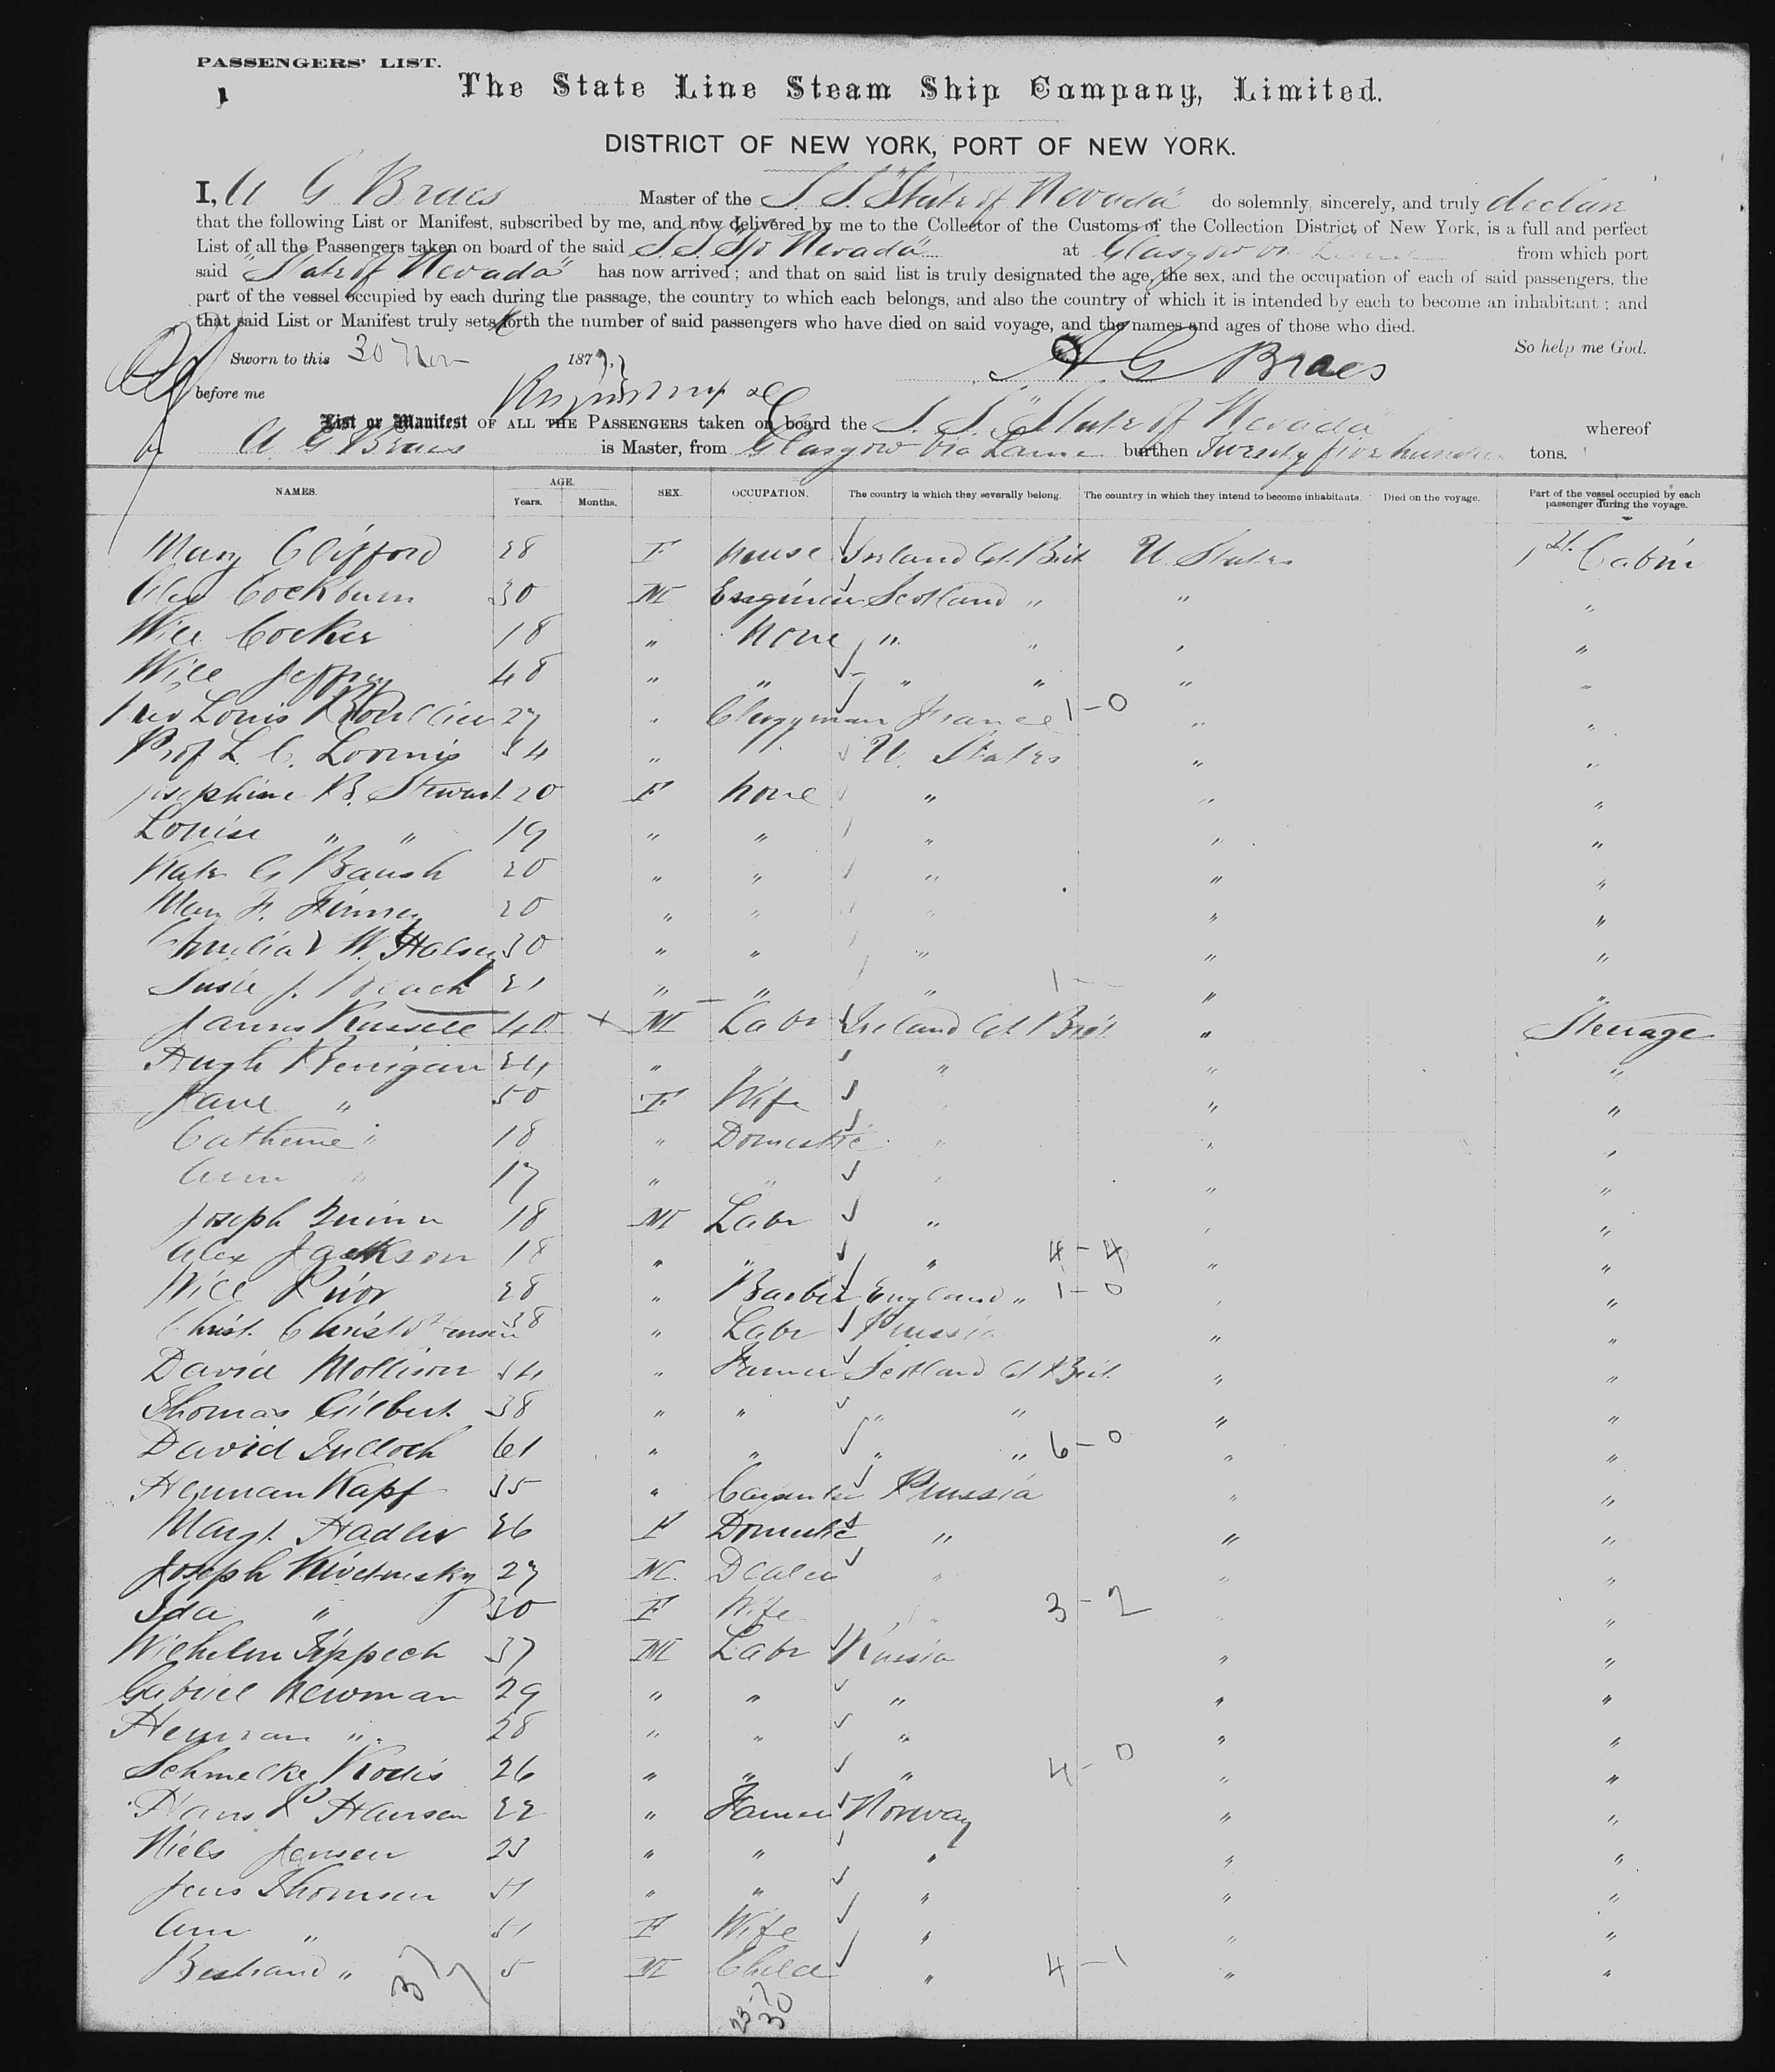 PASSENGERS' LIST.
1
The State Line Steam Ship Company, Limited.
DISTRICT OF NEW YORK, PORT OF NEW YORK.
I, A G Braes Master of the S. S. "State of Nevada" do solemnly, sincerely, and truly declare
that the following List or Manifest, subscribed by me, and now delivered by me to the Collector of the Customs of the Collection District of New York, is a full and perfect
List of all the Passengers taken on board of the said S. S. S/o Nevada" at Glasgow from which port
said "State of Nevada" has now arrived; and that on said list is truly designated the age, the sex, and the occupation of each of said passengers, the
part of the vessel occupied by each during the passage, the country to which each belongs, and also the country of which it is intended by each to become an inhabitant; and
that said List or Manifest truly sets forth the number of said passengers who have died on said voyage, and the names and ages of those who died.
So help me God.
Sworn to this 30 Nov 187
A G Braes
before me
List or Manifest OF ALL THE PASSENGERS taken on board the S. S. "State of Nevada" whereof
A. G Braes is Master, from Glasgow via Larne burthen Twenty five hundred tons.
NAMES. AGE. Years. Months. SEX. OCCUPATION. The country to which they severally belong. The country in which they intend to become inhabitants. Died on the voyage. Part of the vessel occupied by each passenger during the voyage.
Mary Clifford 28 F Ireland Gt. Brit U. States 1st. Cabin
Alex Cockburn 30 M Engineer Scotland " " "
Will Cocker 18 " None " " " "
Will Jeffrey 48 " " " " " "
Louis 27 " Clergyman France 1-0 " "
Prof L. C. Loomis 54 " " U. States " "
Josephine B. Stewart 20 F None " " "
Louise " " 19 " " " " "
Kate G Baush 20 " " " " "
Mary F. Finney 20 " " " " "
W. Halsey 30 " " " " "
Susie J. 21 " " " 1 - " "
James Russell 40 x M Labr Ireland Gt Brit " Steerage
Hugh Kerrigan 24 " " " " "
Jane " 50 F Wife " "
Catherine " 18 " Domestic " " "
Ann " 17 " " " "
Joseph Quinn 18 M Labr " " "
Alex Jackson 18 " " " 4-4 " "
Will Prior 28 " Barber England " 1-0 " "
Christ. 38 " Labr Prussia " "
David Mollison 54 " Farmer Scotland Gt Brit. " "
Thomas Gilbert 38 " " " " " "
David Tulloch 61 " " " " 6-0 " "
Herman Kapf 35 " Carpenter Prussia " "
Margt. Hadler 26 F Domestic " " "
Joseph 27 M. Dealer " " "
Ida " 30 F Wife " 3-2 " "
Wilhelm Tippech 37 M Labr Russia " "
Gabriel Newman 29 " " " " "
Herman " 28 " " " " "
Schmelke Kodis 26 " " " 4-0 " "
Hans P Hansen 22 " Farmer Norway " "
Niels Jensen 23 " " " " "
Jens Thomsen 51 " " " " "
Ann " 51 F Wife " " "
Bertrand " 5 M Child " 4-1 " "
37
23-7
30